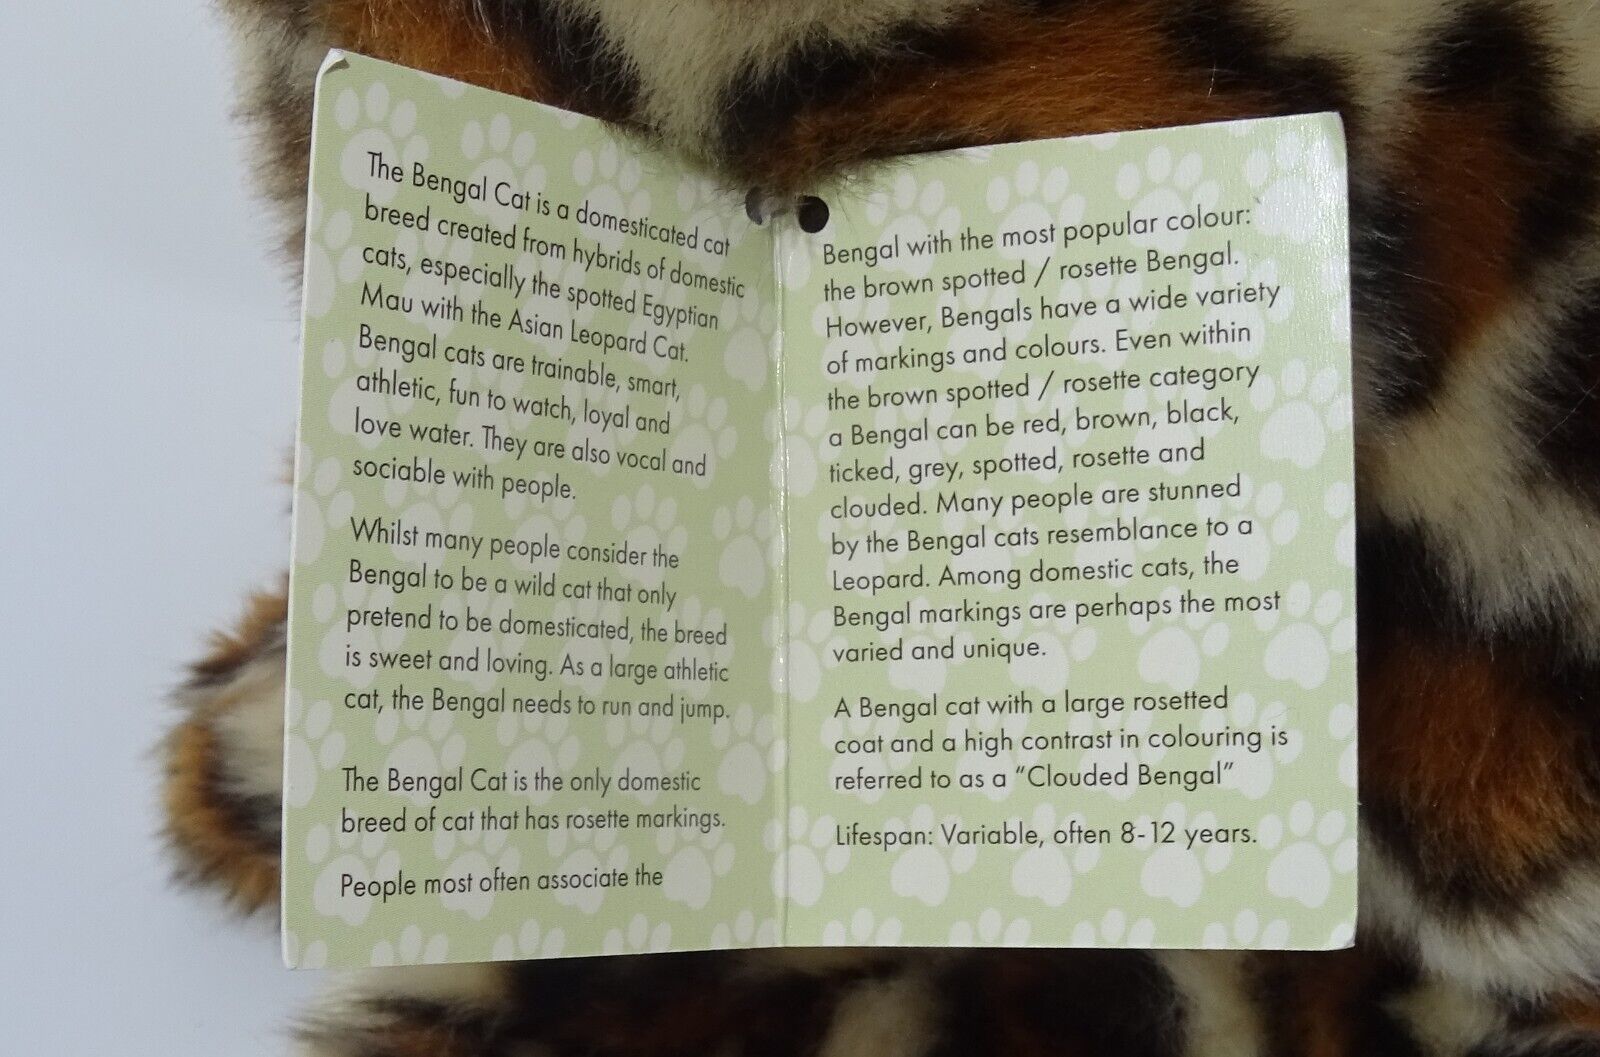 The Bengal Cat is a domesticated cat
breed created from hybrids of domestic
cats, especially the spotted Egyptian
Mau with the Asian Leopard Cat.
Bengal cats are trainable, smart,
athletic, fun to watch, loyal and
love water. They are also vocal and
sociable with people.
Whilst many people consider the
Bengal to be a wild cat that only
pretend to be domesticated, the breed
is sweet and loving. As a large athletic
cat, the Bengal needs to run and jump.
The Bengal Cat is the only domestic
breed of cat that has rosette markings.
People most often associate the
Bengal with the most popular colour:
the brown spotted / rosette Bengal.
However, Bengals have a wide variety
of markings and colours. Even within
the brown spotted / rosette category
a Bengal can be red, brown, black,
ticked, grey, spotted, rosette and
clouded. Many people are stunned
by the Bengal cats resemblance to a
Leopard. Among domestic cats, the
Bengal markings are perhaps the most
varied and unique.
A Bengal cat with a large rosetted
coat and a high contrast in colouring is
referred to as a “Clouded Bengal”
Lifespan: Variable, often 8-12 years.